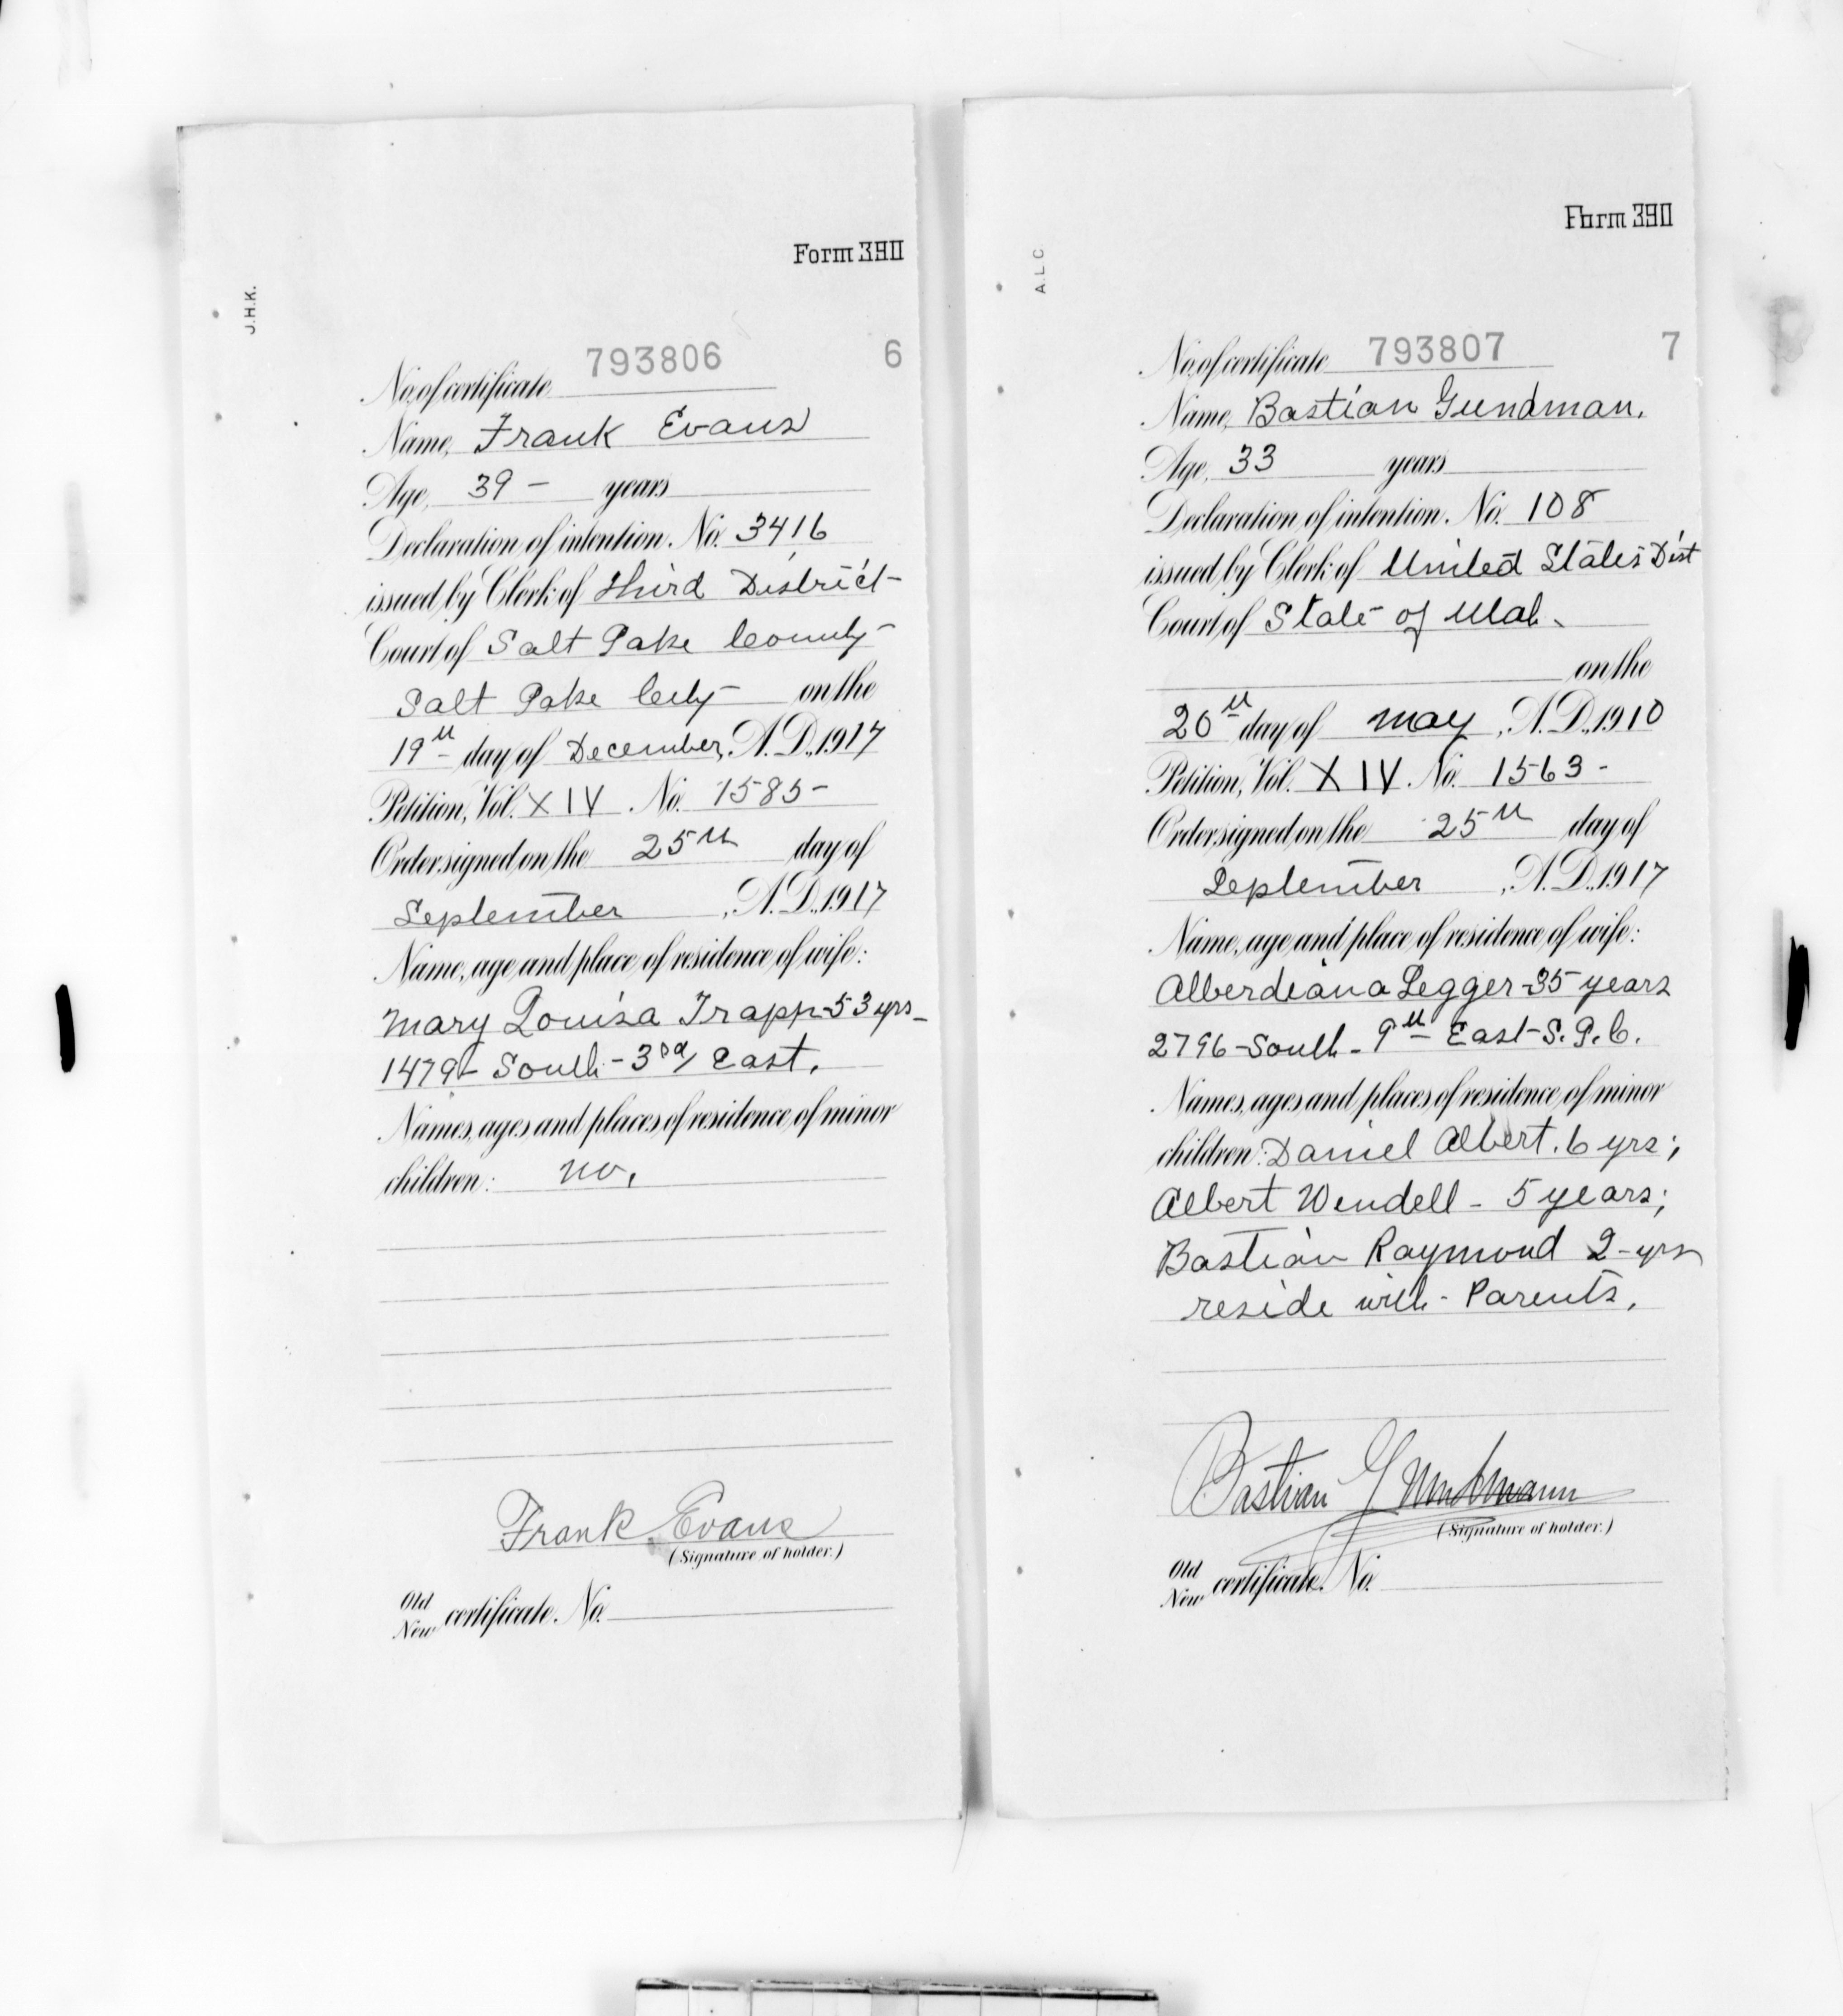 J.H.K.
Form 390
No. of certificate 793806 6
Name, Frank Evans
Age, 39 - years
Declaration of intention, No. 3416
issued by Clerk of Third District
Court of Salt Lake County
Salt Lake City on the
19th day of December, A.D., 1917
Petition, Vol. XIV No. 1585-
Order signed on the 25th day of
September, A.D., 1917
Name, age and place of residence of wife:
Mary Louisa Trapp-53 yrs-
1479-South-3rd East.
Names, ages and places of residence of minor
children: no.
Frank Evans
(Signature of holder.)
Old
New certificate. No.
A.L.C
Form 390
No. of certificate 793807 7
Name, Bastian Gundman.
Age, 33 years
Declaration of intention, No. 108
issued by Clerk of United States Dist
Court of State of Utah.
on the
20th day of May, A.D., 1910
Petition, Vol. XIV. No. 1563-
Order signed on the 25th day of
September, A.D., 1917
Name, age and place of residence of wife:
Alberdeana Legger-35 years
2796-South-9th East-S.L.C.
Names, ages and places of residence of minor
children: Daniel Albert. 6 yrs;
Albert Wendell - 5 years;
Bastian Raymond 2-yrs
reside with-Parents.
Bastian Gundmann
(Signature of holder.)
Old
New certificate. No.